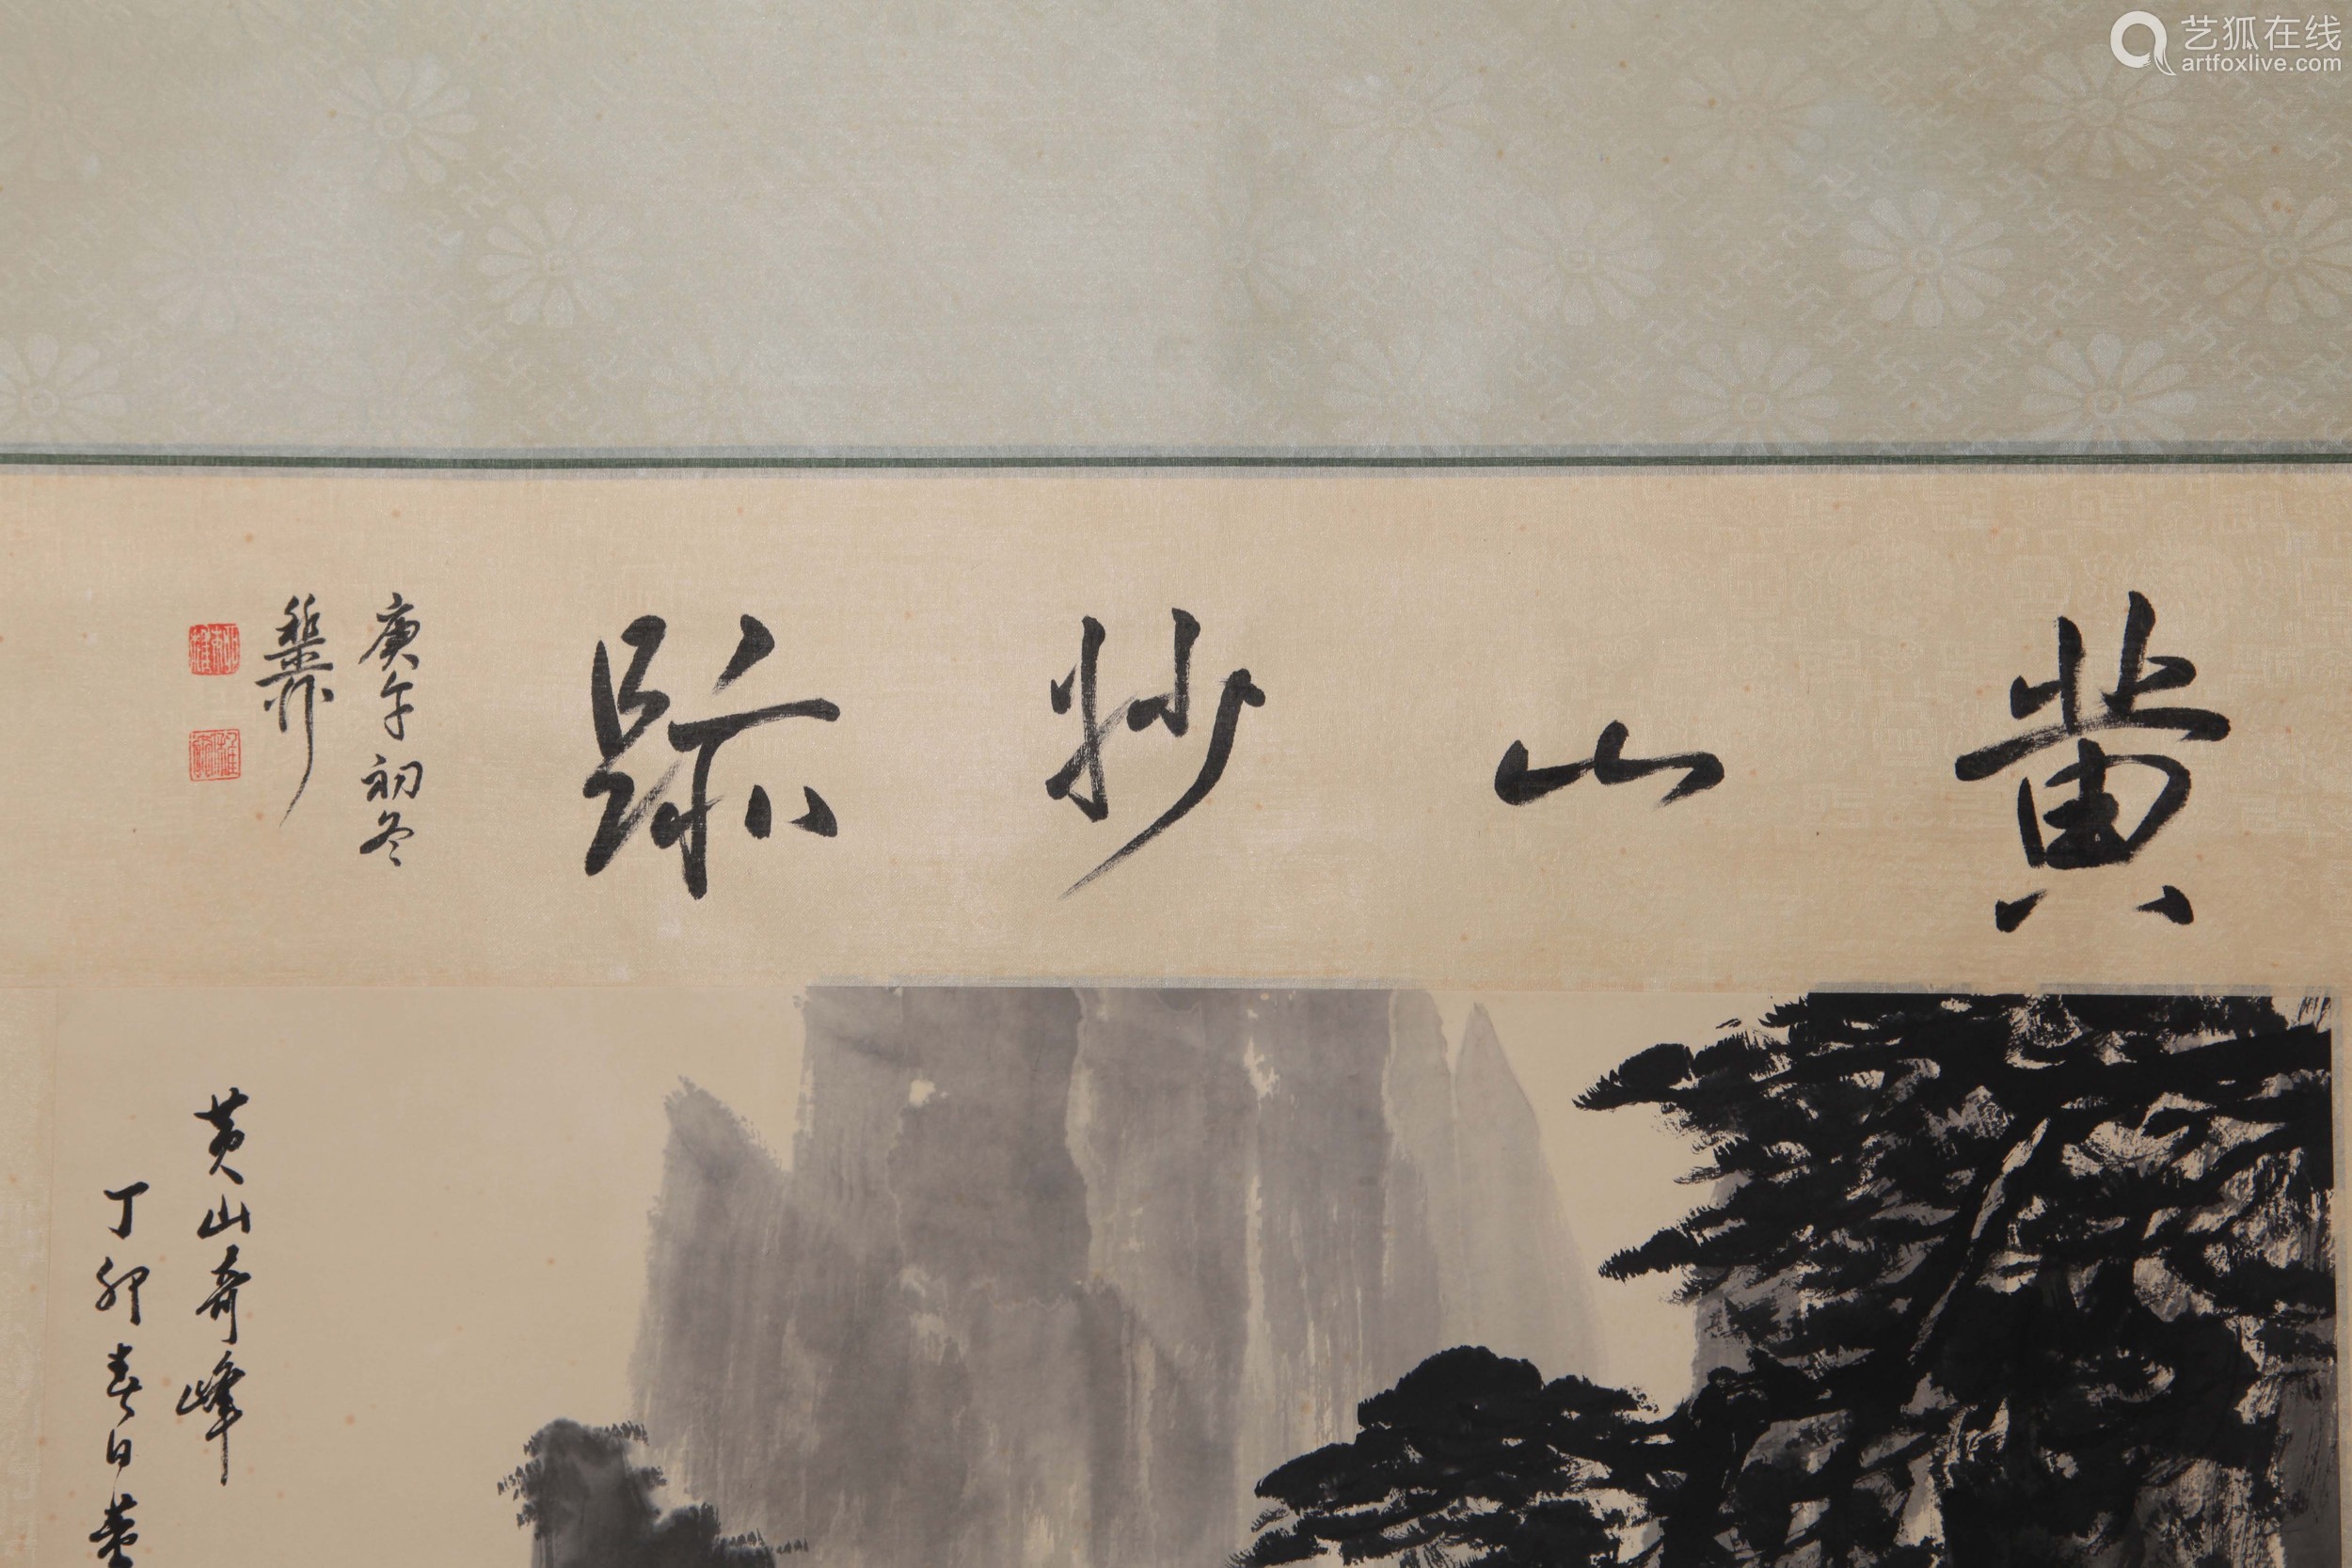 艺狐在线
artfoxlive.com
黄山妙跡
庚午初冬
稚柳
黄山奇峰
丁卯春日董